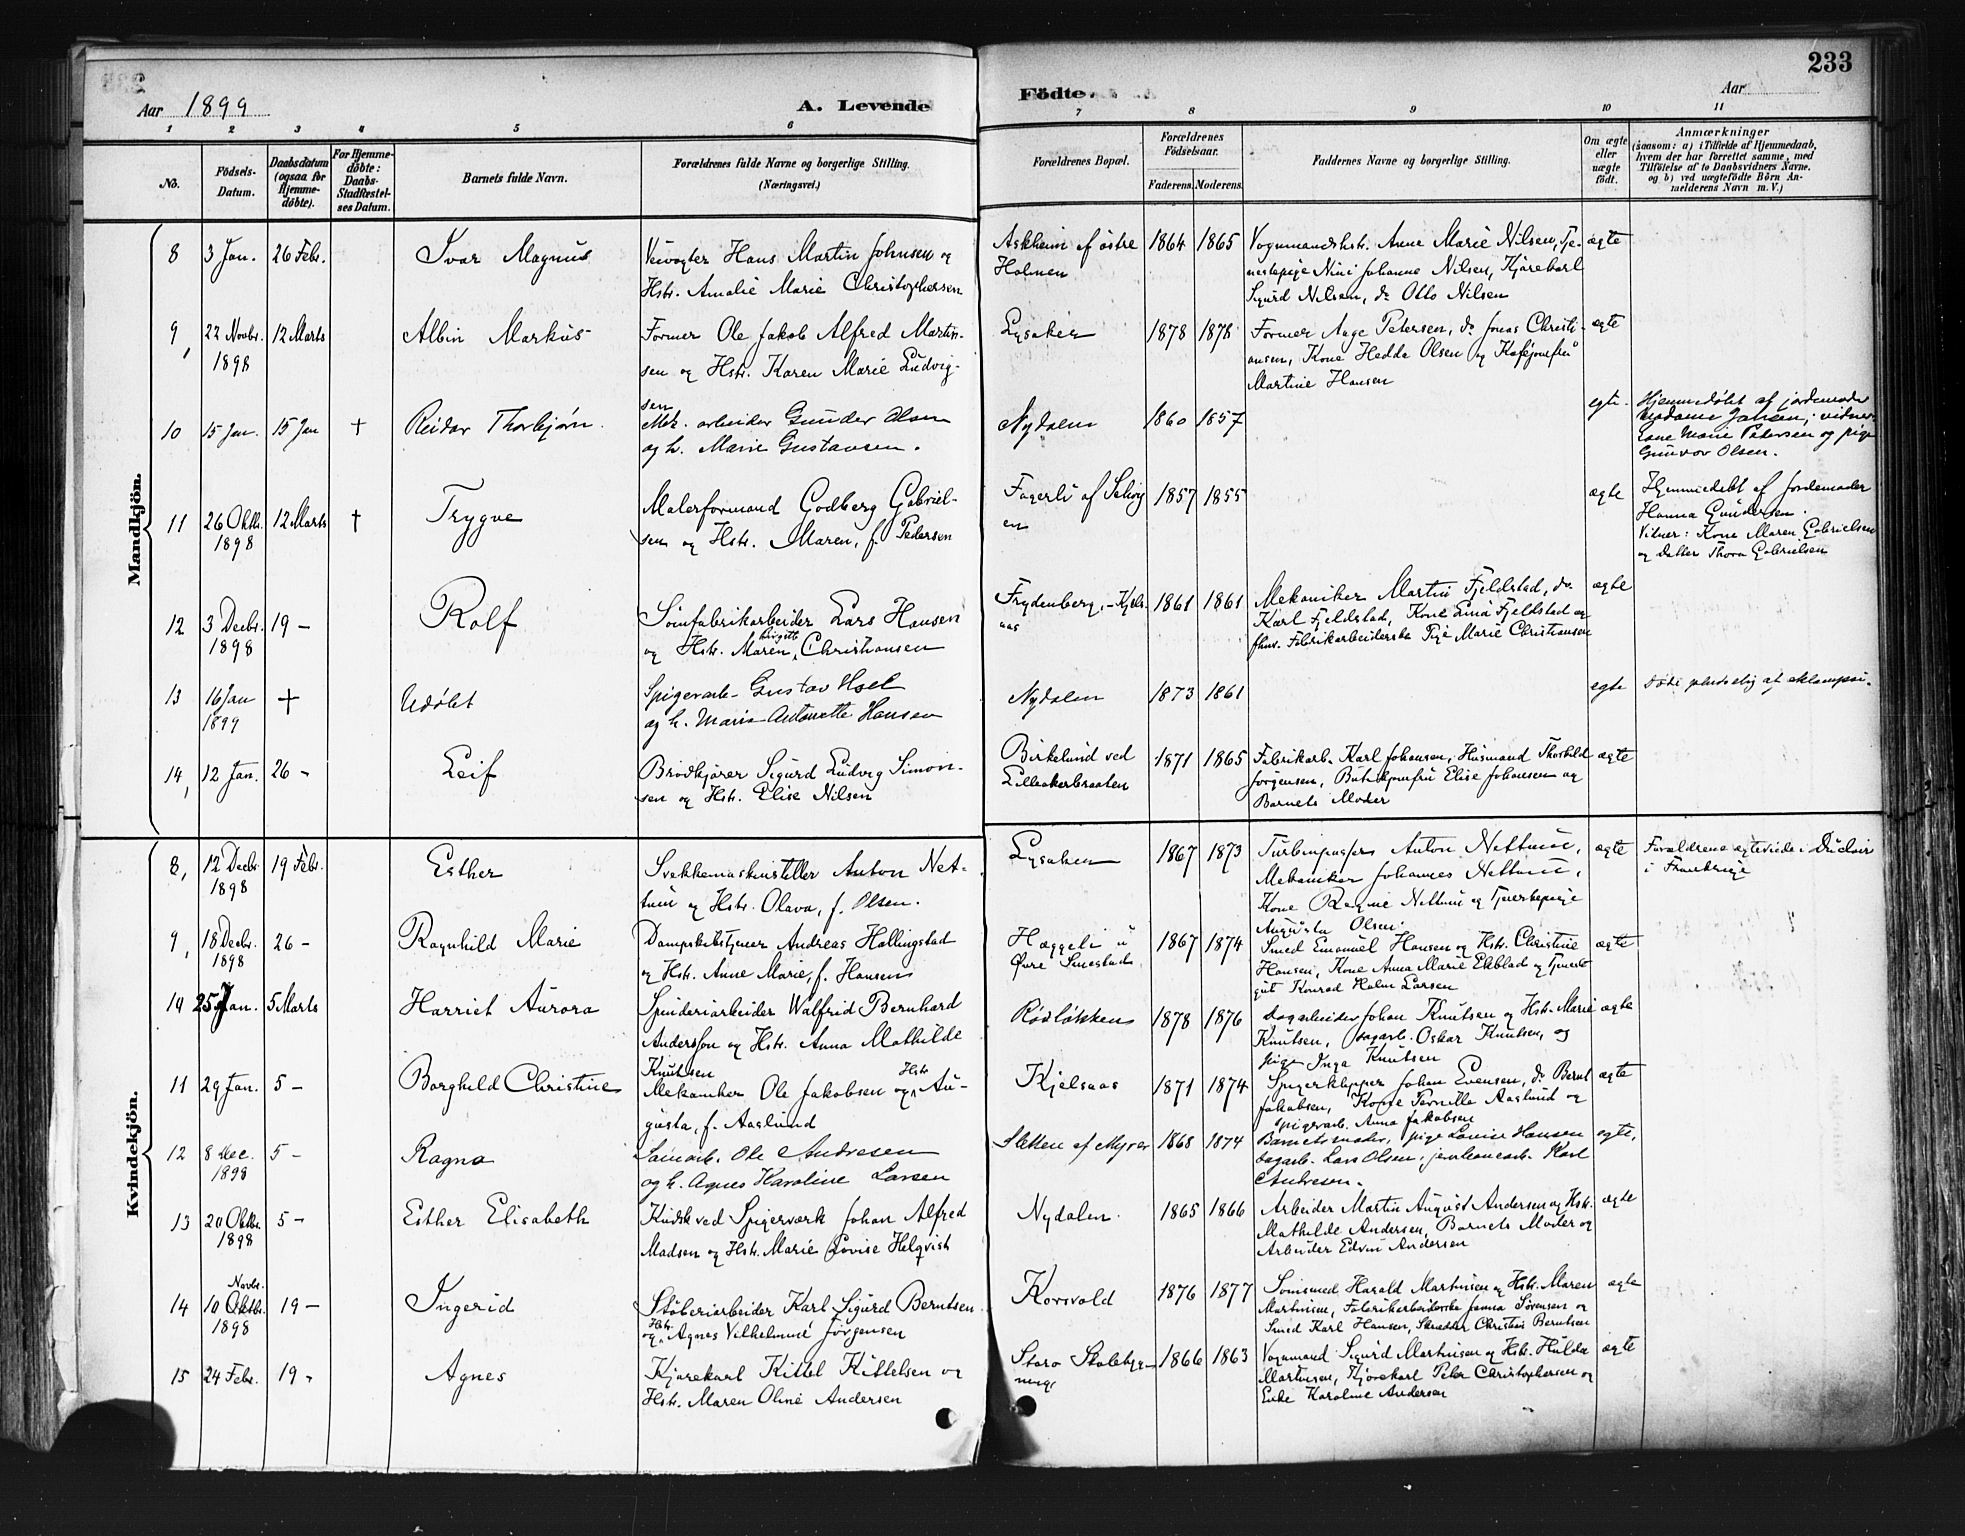 233
Aar 1899
A. Levende
Födte.
Aar
1 2 3 4 5 6 7 8 9 10 11
No.
Födsels-Datum.
Daabsdatum (ogsaa for Hjemmedøbte).
For Hjemmedøbte: Daabs-Stadfæstelses Datum.
Barnets fulde Navn.
Forældrenes fulde Navne og borgerlige Stilling. (Næringsvei.)
Forældrenes Bopæl.
Forældrenes Födselsaar.
Faderens. Moderens.
Faddernes Navne og borgerlige Stilling.
Om ægte eller uægte født.
Anmærkninger
(saasom: a) i Tilfælde af Hjemmedaab, hvem der har forrettet samme, med Tilföielse af to Daabsvidners Navne, og b) ved uægtefödte Börn Anmelderens Navn m. V.)
Mandkjön.
8 3 Jan. 26 Febr. Ivar Magnus
Veivogter Hans Martin Johnsen og
Hstr. Amalie Marie Christophersen
Askheim af østre
Holmen
1864 1865
Vognmandshstr. Anne Marie Nilsen, Tje-
nestepige Nini Johanne Nilsen, Kjørekarl
Sigurd Nilsen, do Otto Nilsen
ægte
9, 22 Novbr. 1898 12 Marts Albin Markus
Former Ole Jakob Alfred Martin-
sen og Hstr. Karen Marie Ludvig-
sen
Lysaker 1878 1878
Former Aage Petersen, do Jonas Christi-
ansen, Kone Hedda Olsen og Kaféjomfru
Martine Hansen
ægte
10 15 Jan. 15 Jan † Reidar Thorbjørn.
Mek. arbeider Gunder Olsen
og h. Marie Gustavsen.
Nydalen 1860 1857
egte.
Hjemmedøbt af jordemoder
Madame Jansen; vidner
Lane Marie Petersen og pige
Gunvor Olsen.
11 26 Oktbr. 1898 12 Marts † Trygve
Malerformand Godberg Gabriel-
sen og Hstr. Maren, f. Pedersen
Fagerli af
en
1857 1855
ægte
Hjemmedøbt af Jordemoder
Hanna Gundersen.
Vidner: Kone Maren Gabrielsen
og datter Thora Gabrielsen
12 3 Decbr. 1898 19 - Rolf
Sømfabrikarbeider Lars Hansen
og Hstr. Maren Birgitte Christiansen
Frydenberg, - Kjels-
aas
1861 1861
Mekaniker Martin Fjeldstad, do
Karl Fjeldstad, Kone Lina Fjeldstad og
fhv. Fabrikarbeiderske Pige Marie Christiansen
ægte
13 16 Jan 1899 † Udøbt
Spigerarb. Gustav Hoel
og h. Marie Antonette Hansen
Nydalen 1873 1861
egte
Døde pludselig af eklampsi.
14, 12 Jan. 26 - Leif
Brødkjører Sigurd Ludvig Simon-
sen og Hstr. Elise Nilsen
Birkelund ved
Lilleakerbraaten
1871 1865
Fabrikarb. Karl Johansen, Husmand Thorvald
Jørgensen, Butikjomfru Elise Johansen og
Barnets Moder
ægte
Kvindekjön.
8, 12 Decbr 1898 19 Febr. Esther
Svekkemaskinstiller Anton Net-
tum og Hstr. Olava, f. Olsen.
Lysaker 1867 1873
Turbinpasser Anton Nettum,
Mekaniker Johannes Nettum,
Kone Ragne Nettum og Tjenestepige
Augusta Olsen
ægte
Forældrene ægteviede i Duclair
i Frankrige
9, 18 Decbr. 1898 26 - Ragnhild Marie
Dampskibstjener Andreas Hallingstad
og Hstr. Anne Marie, f. Hansen
Hæggeli u
Øvre Smestad
1867 1874
Smed Emanuel Hansen og Hstr. Christine
Hansen, Kone Anna Marie Ekblad og Tjeneste-
gut Konrad Holm Larsen
ægte
10 25 Jan. 5 Marts Harriet Aurora
Spinderiarbeider Walfrid Bernhard
Andersson og Hstr. Anna Mathilde
Knutsen
Rødløkken 1878 1876
Dagarbeider Johan Knutsen og Hstr. Marie
Knutsen, dagarb. Oskar Knutsen, og
pige Inga Knutsen
ægte
11 29 Jan. 5 - Borghild Christine
Mekaniker Ole Jakobsen og Hstr. Au-
gusta, f. Aaslund
Kjelsaas 1871 1874
Spigerklipper Johan Evensen, do Bernt
Jakobsen, Kone Pernille Aaslund og
spigerarb. Anna Jakobsen
ægte
12 8 Dec. 1898 5 - Ragna
Sømarb. Ole Andresen
og h. Agnes Karoline Larsen
Sletten af Myrer 1868 1874
Barnets moder, pige Lovise Hansen
dagarb. Lars Olsen, Karl
Andresen.
egte.
13 20 Oktbr. 1898 5 - Esther Elisabeth
Kudsk ved Spigerværk Johan Alfred
Madsen og Hstr. Marie Lovise Helqvist
Nydalen. 1865 1866
Arbeider Martin August Andersen og Hstr.
Mathilde Andersen, Barnets Moder og
Arbeider Edvin Andersen
ægte
14 10 Novbr. Oktbr. 1898 19 - Ingerid
Støberiarbeider Karl Sigurd Berntsen
og Hstr. Agnes Vilhelmine Jørgensen
Korsvold 1876 1877
Sømsmed Harald Martinsen og Hstr. Maren
Martinsen, Fabrikarbeiderske Janna Sørensen og
Smed Karl Hansen, Skrædder Christian Berntsen
ægte
15 24 Febr. 19 - Agnes
Kjørekarl Kittel Kittelsen og
Hstr. Maren Oline Andersen
Storo Skolebyg-
ning
1866 1863
Vognmand Sigurd Martinsen og Hstr. Hulda
Martinsen, Kjørekarl Peter Christophersen og
Enke Karoline Andersen
ægte